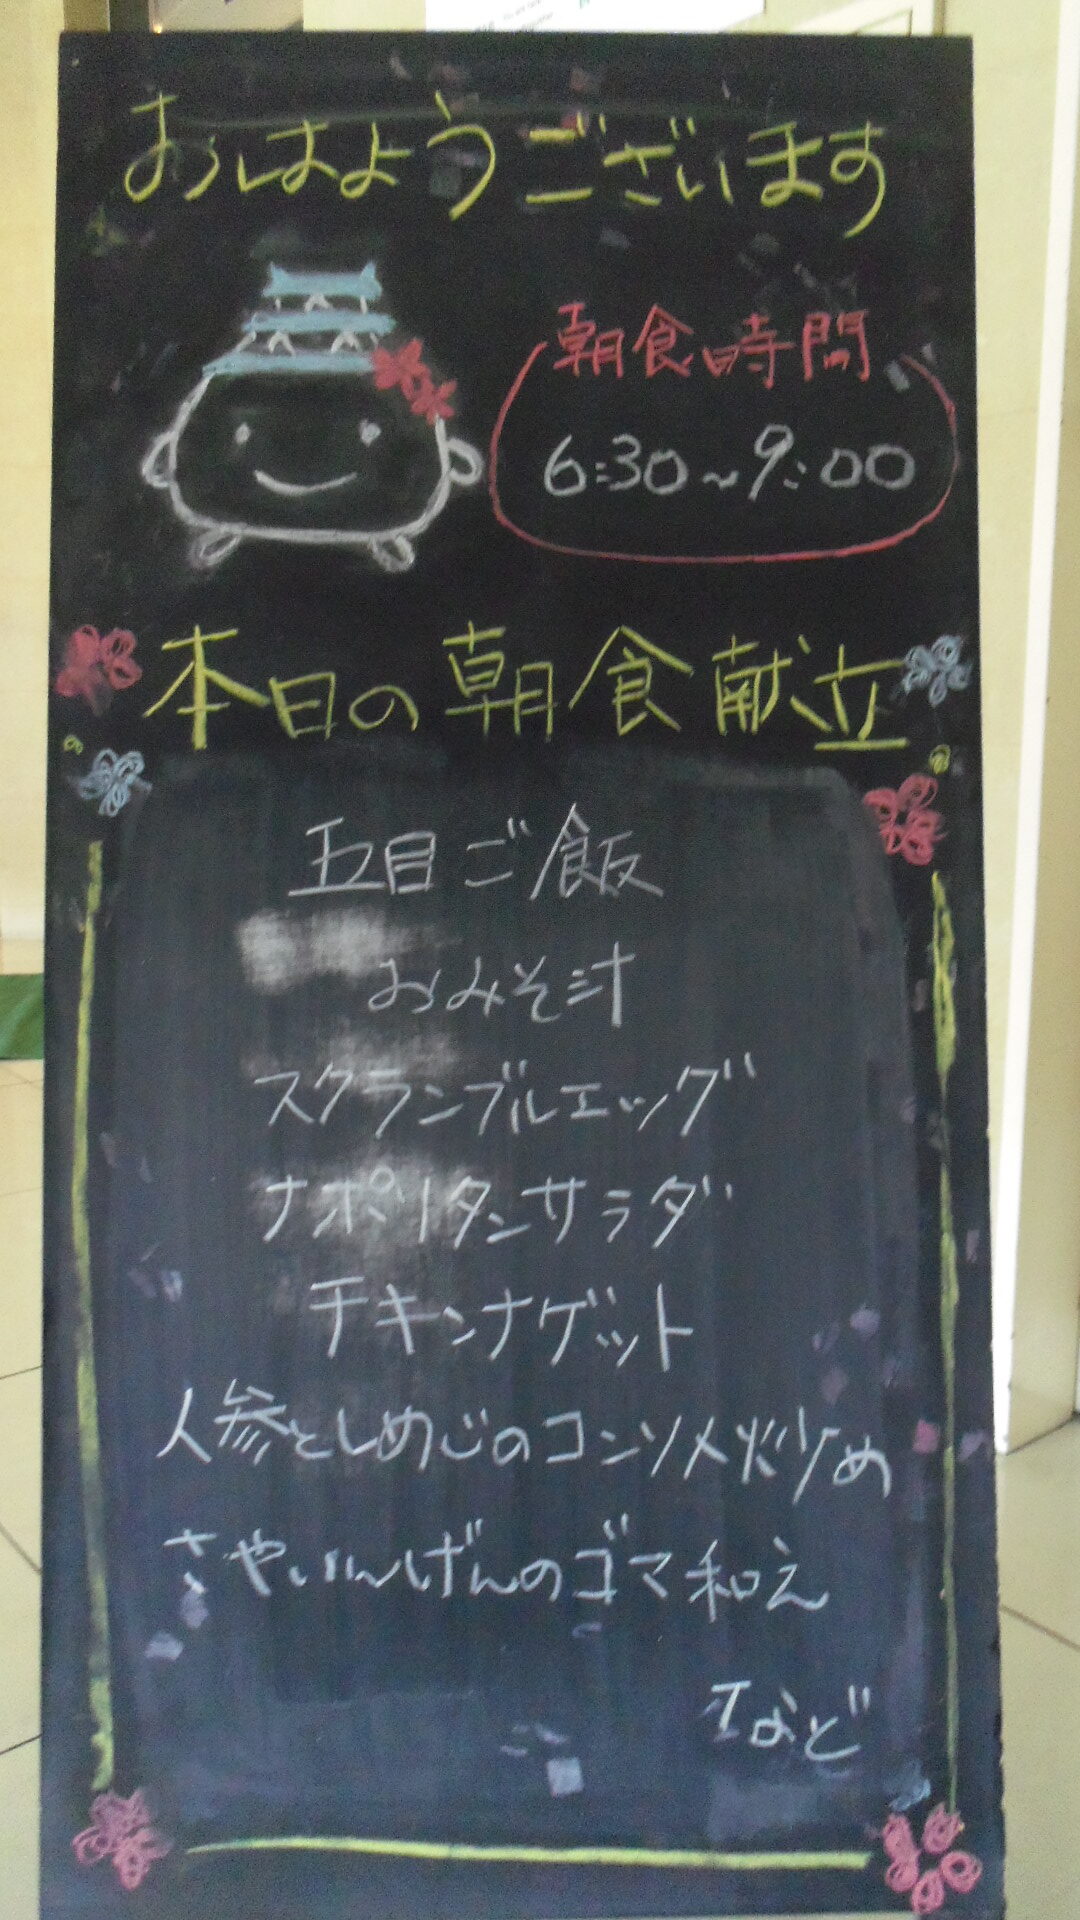 おはようございます
朝食時間
6:30～9:00
本日の朝食献立
五目ご飯
おみそ汁
スクランブルエッグ
ナポリタンサラダ
チキンナゲット
人参としめじのコンソメ炒め
さやいんげんのゴマ和え
など